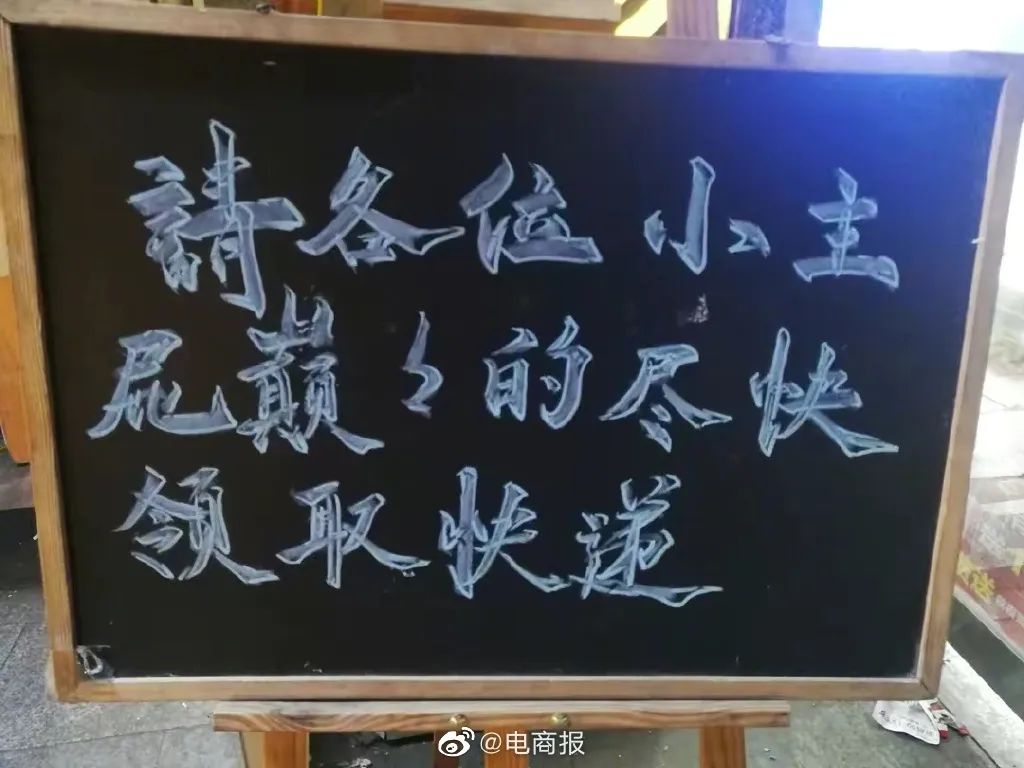 請各位小主
屁巅々的尽快
领取快递
@电商报